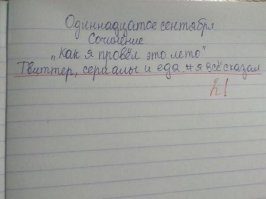 Одиннадцатое сентября
Сочинение
„Как я провёл это лето"
Твиттер, сериалы и еда я всё сказал